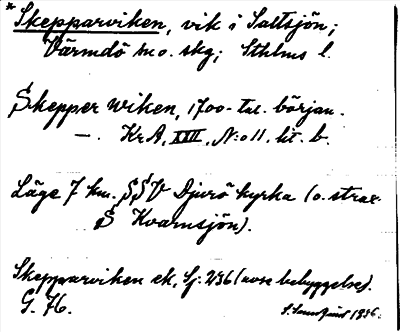 * Skepparviken, vik i Saltsjön;
Värmdö sko. skg; Sthlms l.
Skepper wiken, 1700-tal. början.
—. KrA, XXII, N:o 11. lit. b.
Läge 7 km. SSV Djurö kyrka (o. strax
S Kvarnsjön).
Skepparviken ek, Sj. 236 (avse bebyggelse).
G. 76.
1936.